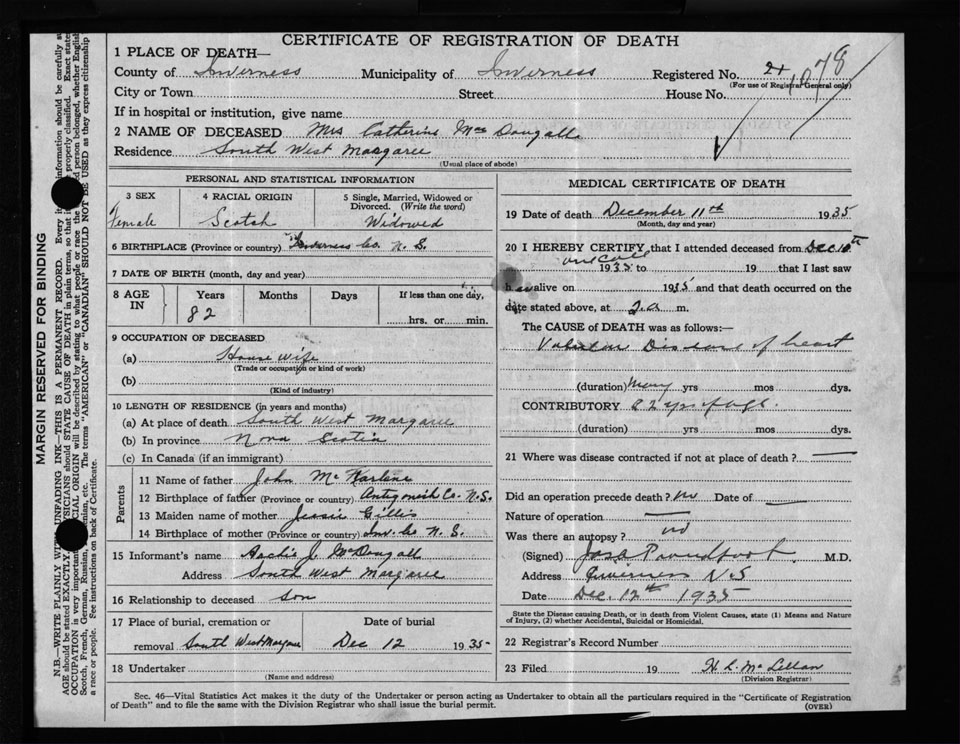 CERTIFICATE OF REGISTRATION OF DEATH
1 PLACE OF DEATH—
County of Inverness Municipality of Inverness Registered No. 1078
(For use of Registrar General only)
City or Town Street House No.
If in hospital or institution, give name
2 NAME OF DECEASED Mrs Catherine MacDougall
Residence South West Margaree
(Usual place of abode)
PERSONAL AND STATISTICAL INFORMATION
3 SEX 4 RACIAL ORIGIN 5 Single, Married, Widowed or Divorced. (Write the word)
Female Scotch Widowed
6 BIRTHPLACE (Province or country) Inverness Co. N. S.
7 DATE OF BIRTH (month, day and year)
8 AGE IN Years Months Days If less than one day,
82 hrs. or min.
9 OCCUPATION OF DECEASED
(a) House wife
(Trade or occupation or kind of work)
(b)
(Kind of industry)
10 LENGTH OF RESIDENCE (in years and months)
(a) At place of death South West Margaree
(b) In province Nova Scotia
(c) In Canada (if an immigrant)
Parents
11 Name of father John
12 Birthplace of father (Province or country) Antigonish Co. N.S.
13 Maiden name of mother Jessie Gillis
14 Birthplace of mother (Province or country) Inv. Co N. S.
15 Informant's name Archie J. MacDougall
Address South West Margaree
16 Relationship to deceased Son
17 Place of burial, cremation or removal South West Margaree Date of burial Dec 12 1935
18 Undertaker
(Name and address)
MEDICAL CERTIFICATE OF DEATH
19 Date of death December 11th 1935
(Month, day and year)
20 I HEREBY CERTIFY that I attended deceased from Dec 10th
one call
1935 to 19 that I last saw
h alive on 1935 and that death occurred on the
date stated above, at 2.a. m.
The CAUSE of DEATH was as follows:—
Valvular Disease of heart
(duration) Many yrs mos dys.
CONTRIBUTORY 82 yrs of age.
(duration) yrs mos dys.
21 Where was disease contracted if not at place of death? —
Did an operation precede death? no Date of —
Nature of operation —
Was there an autopsy? no
(Signed) M.D.
Address Inverness N.S
Date Dec. 12th 1935
State the Disease causing Death, or in death from Violent Causes, state (1) Means and Nature
of Injury, (2) whether Accidental, Suicidal or Homicidal.
22 Registrar's Record Number
23 Filed 19 H. L. McLellan
(Division Registrar)
Sec. 46—Vital Statistics Act makes it the duty of the Undertaker or person acting as Undertaker to obtain all the particulars required in the "Certificate of Registration
of Death" and to file the same with the Division Registrar who shall issue the burial permit.
(OVER)
MARGIN RESERVED FOR BINDING
N.B.—WRITE PLAINLY WITH UNFADING INK—THIS IS A PERMANENT RECORD. Every information should be carefully
AGE should be stated EXACTLY. PHYSICIANS should STATE CAUSE OF DEATH in plain terms, so that it properly classified. Exact
OCCUPATION is very important. RACIAL ORIGIN will be described by stating to what people or race the person belonged, whether English
Scotch, French, German, Russian, etc. The terms "AMERICAN" or "CANADIAN" SHOULD NOT BE USED as they express citizenship
a race or people. See instructions on back of Certificate.